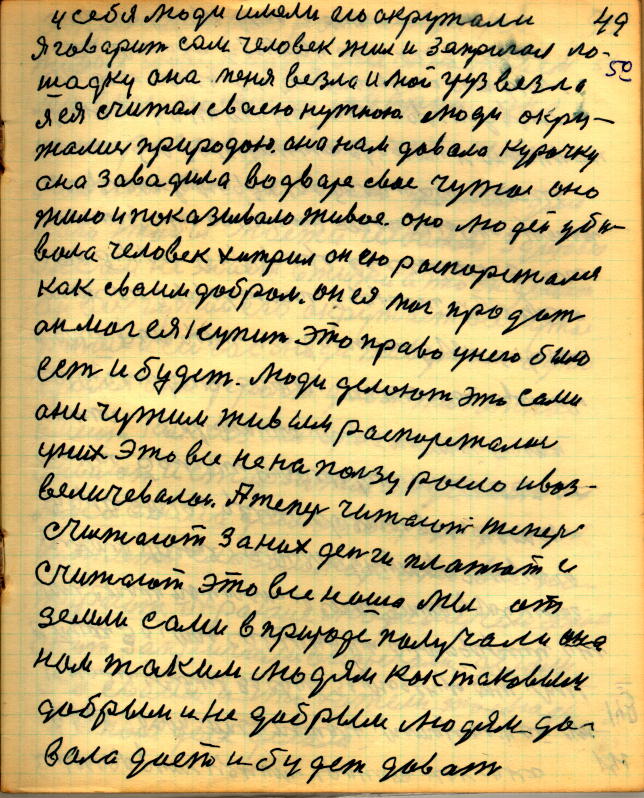 у себя люди имели его окружали 49
я говарит сам человек жил и запригал ло- 50
шадку она меня везла и мой груз везла
я ея считал сваею нужною люди окру-
жалися природою. она нам довала курочку
ана завадила водваре свае чужое оно
жило и показивало живое. оно людей уби-
вала человек хитрил он ею распоряжался
как своим добром. он ея мог продат
он мог ея купит это право унего было
ест и будет. люди делоют это сами
они чужим живым распоряжалис
у них это все не наползу росло и воз-
величевалос. А тепер читают тепер
считают за них денги платят и
считают это все нашо Мы от
земли сами в природе получали она
нам таким людям как таковым
добрым и не добрым людям да-
вала дает и будет давать